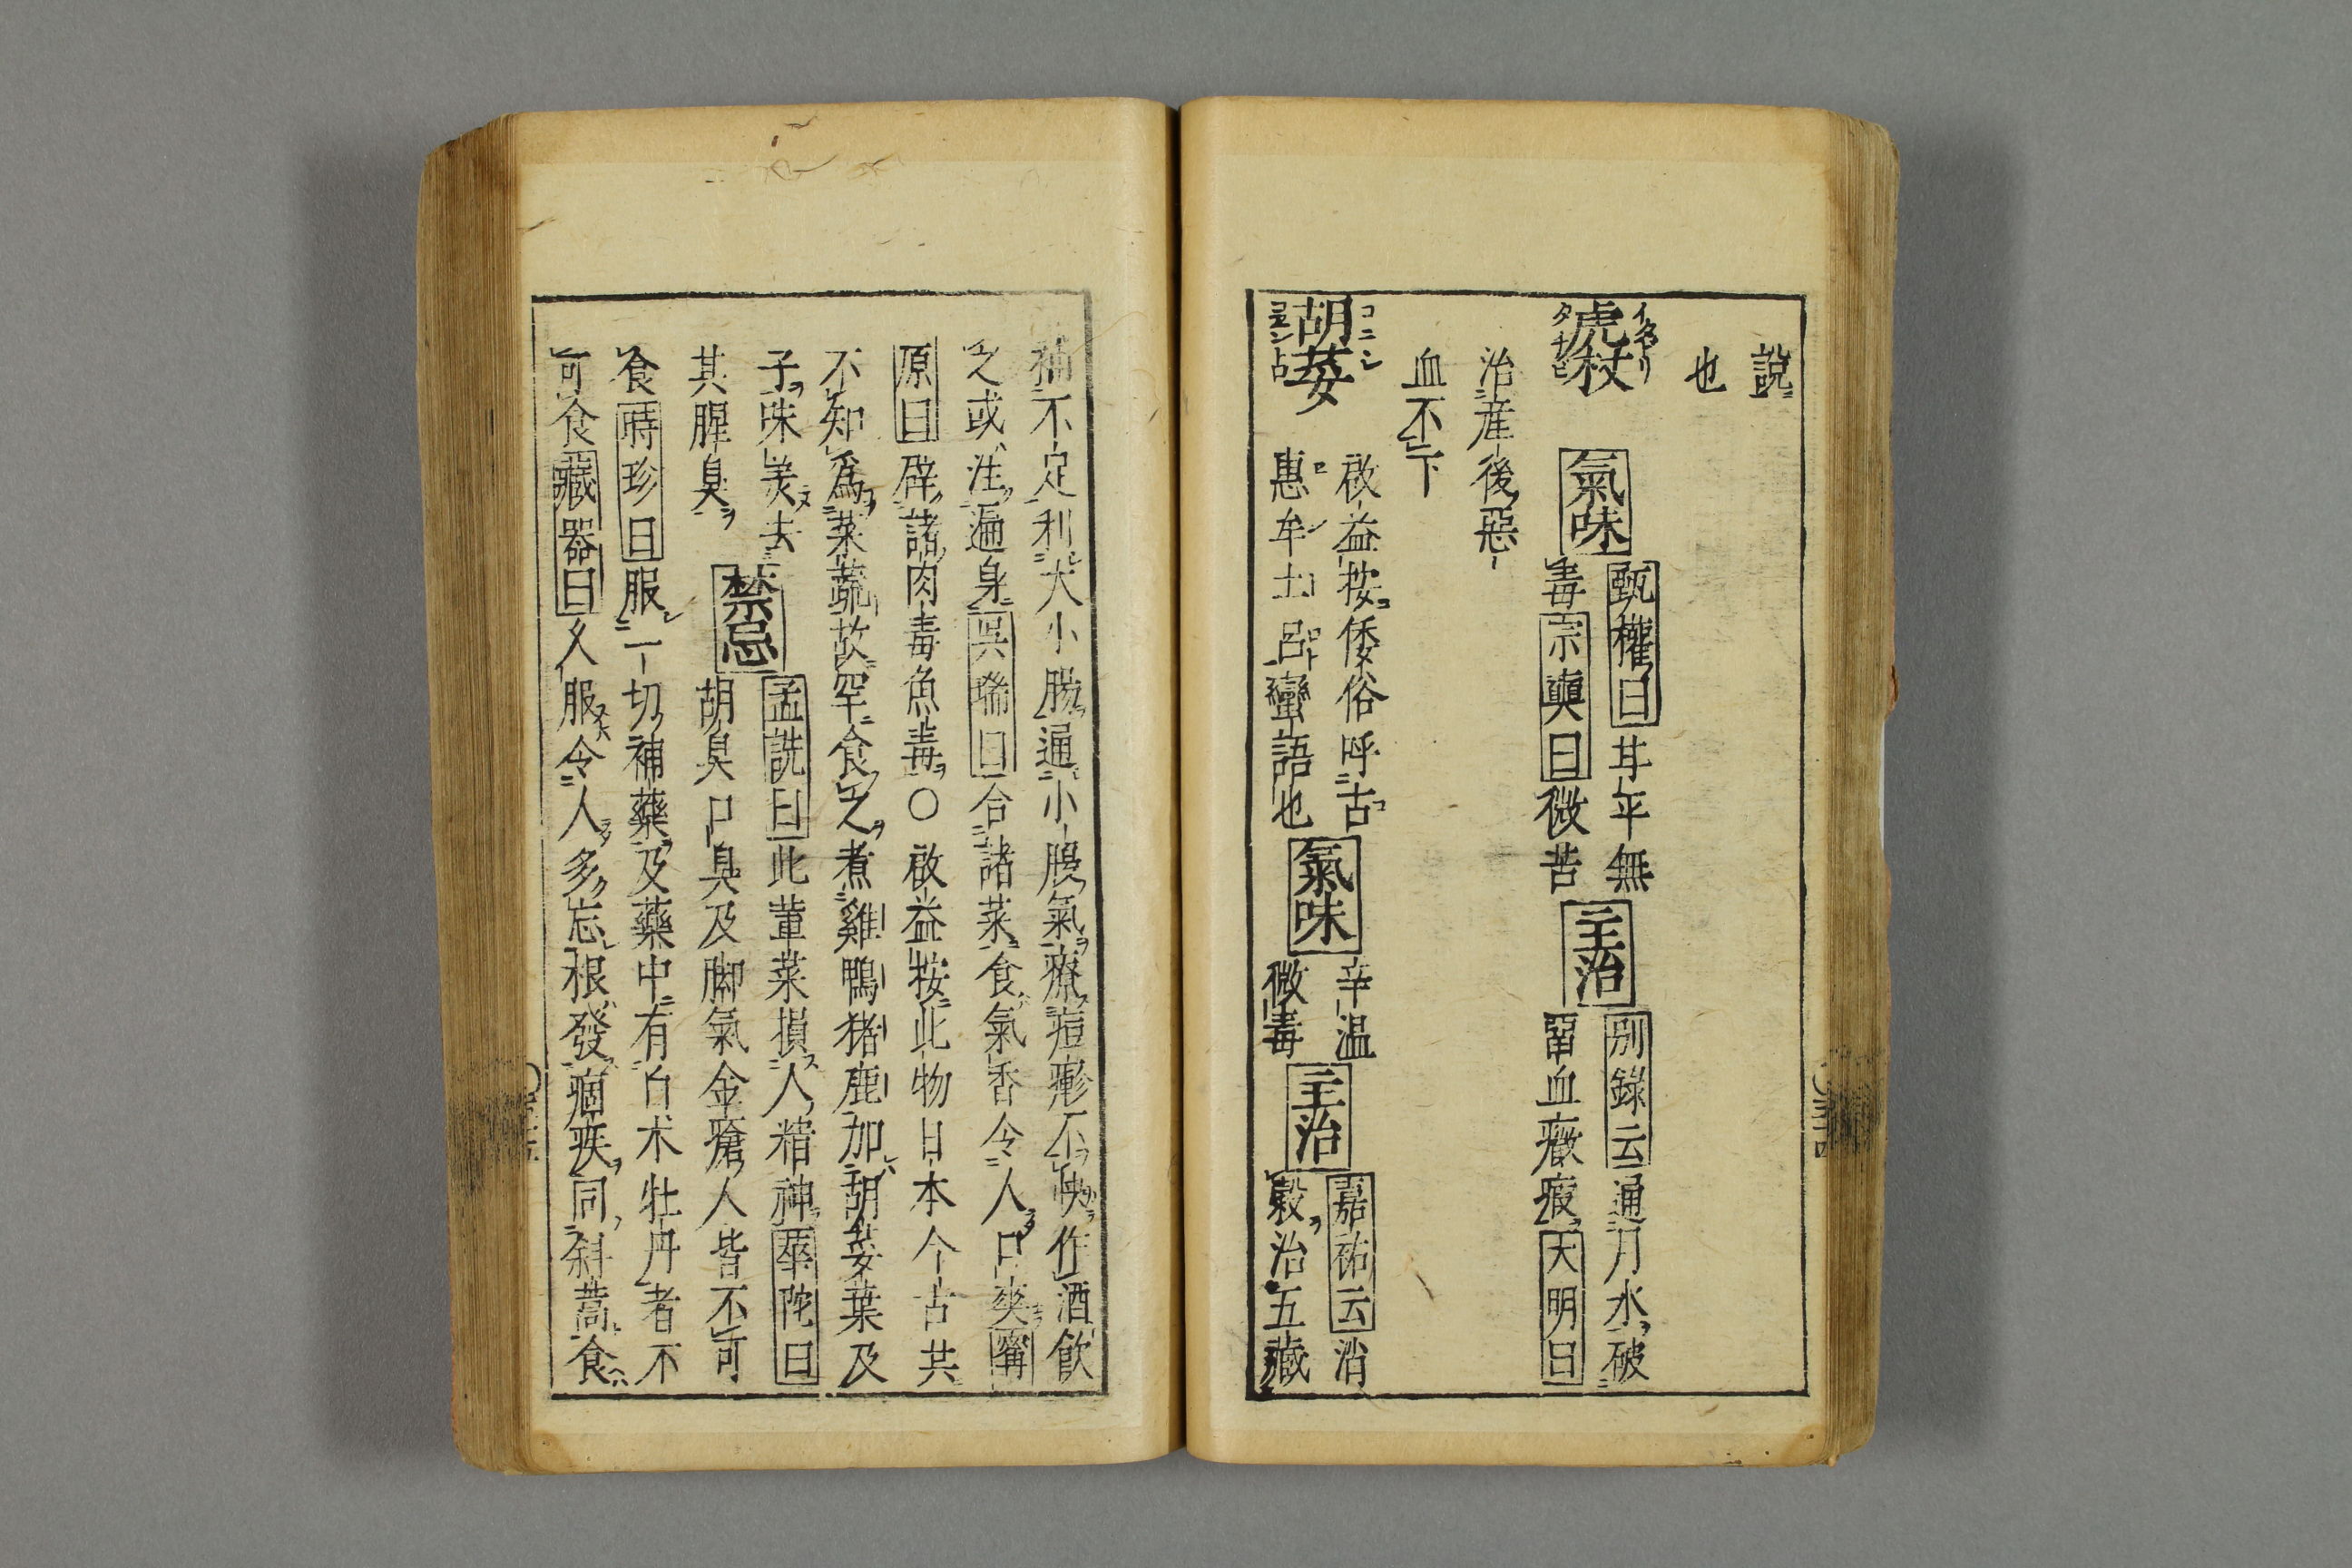 說
也
虎杖 氣味 甄權曰甘平無
毒宗奭曰微苦 主治 別錄云通月水破
留血癥瘕大明曰
治產後惡
血不下
胡荽 啟益按倭俗呼古
惠牟士呂蠻語也 氣味 辛温
微毒 主治 嘉祐云消
穀治五藏
補不足利大小腸通小腹氣療痘疹不快作酒飲
之或注遍身吳瑞曰合諸菜食氣香令人口爽寗
原曰辟諸肉毒魚毒〇啟益按此物日本今古共
不知爲菜蔬故罕食之煮雞鴨猪鹿加胡荽葉及
子味美去
其腥臭 禁忌 孟詵曰此葷菜損人精神華陀曰
胡臭口臭及脚氣金瘡人皆不可
食時珍曰服一切補藥及藥中有白朮牡丹者不
可食藏器曰久服令人多忘根發痼疾同斜蒿食